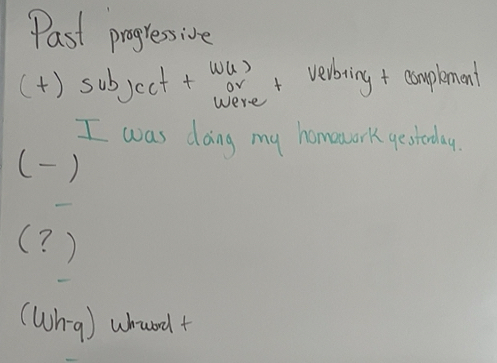 Past progressive
(+) subject + was or were + verb+ing + complement
I was doing my homework yesterday.
(-)
-
(?)
-
(Wh-q) Wh-word +
-